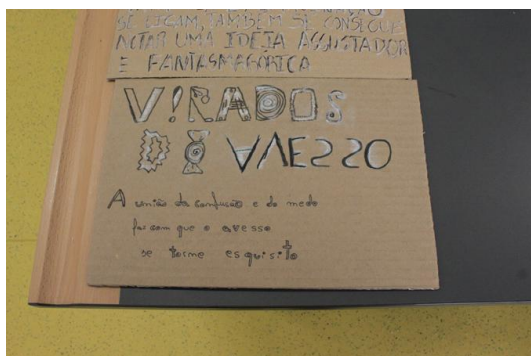 SE LIGAM, TAMBÉM SE CONSEGUE
ACTAR UMA IDEIA ASSUSTADOR
E FANTASMAGÓRICA
V!RADOS
DO AVESSO
A união da confusão e do medo
faz com que o avesso
se torne esquisito